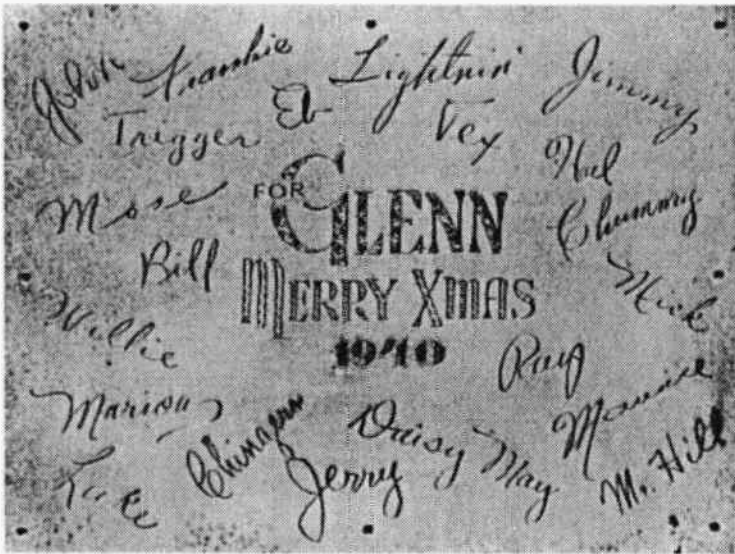 John
Frankie
Lightnin'
Jimmy
Trigger
Eb
Tex
Hal
Mose
FOR
GLENN
Chummy
Bill
MERRY XMAS
Mick
Willie
1940
Ray
Marion
Daisy May
Maurice
Jerry
M. Hill